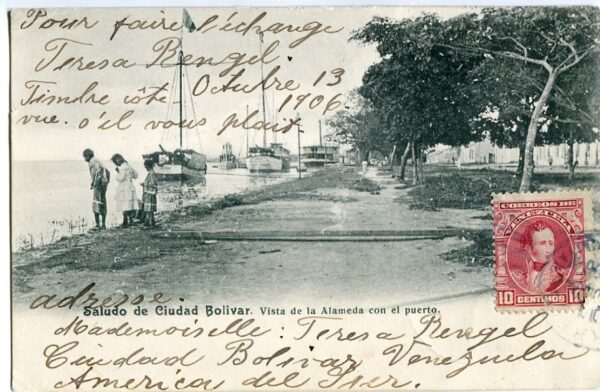 Pour faire l'échange
Teresa Rengel.
Octubre 13
Timbre côté 1906.
vue. o'il vous plait
CORREOS DE
VENEZUELA
10 CENTIMOS 10
adresse.
Saludo de Ciudad Bolivar. Vista de la Alameda con el puerto.
Mademoiselle: Teresa Rengel
Ciudad Bolivar Venezuela
America del Sur.